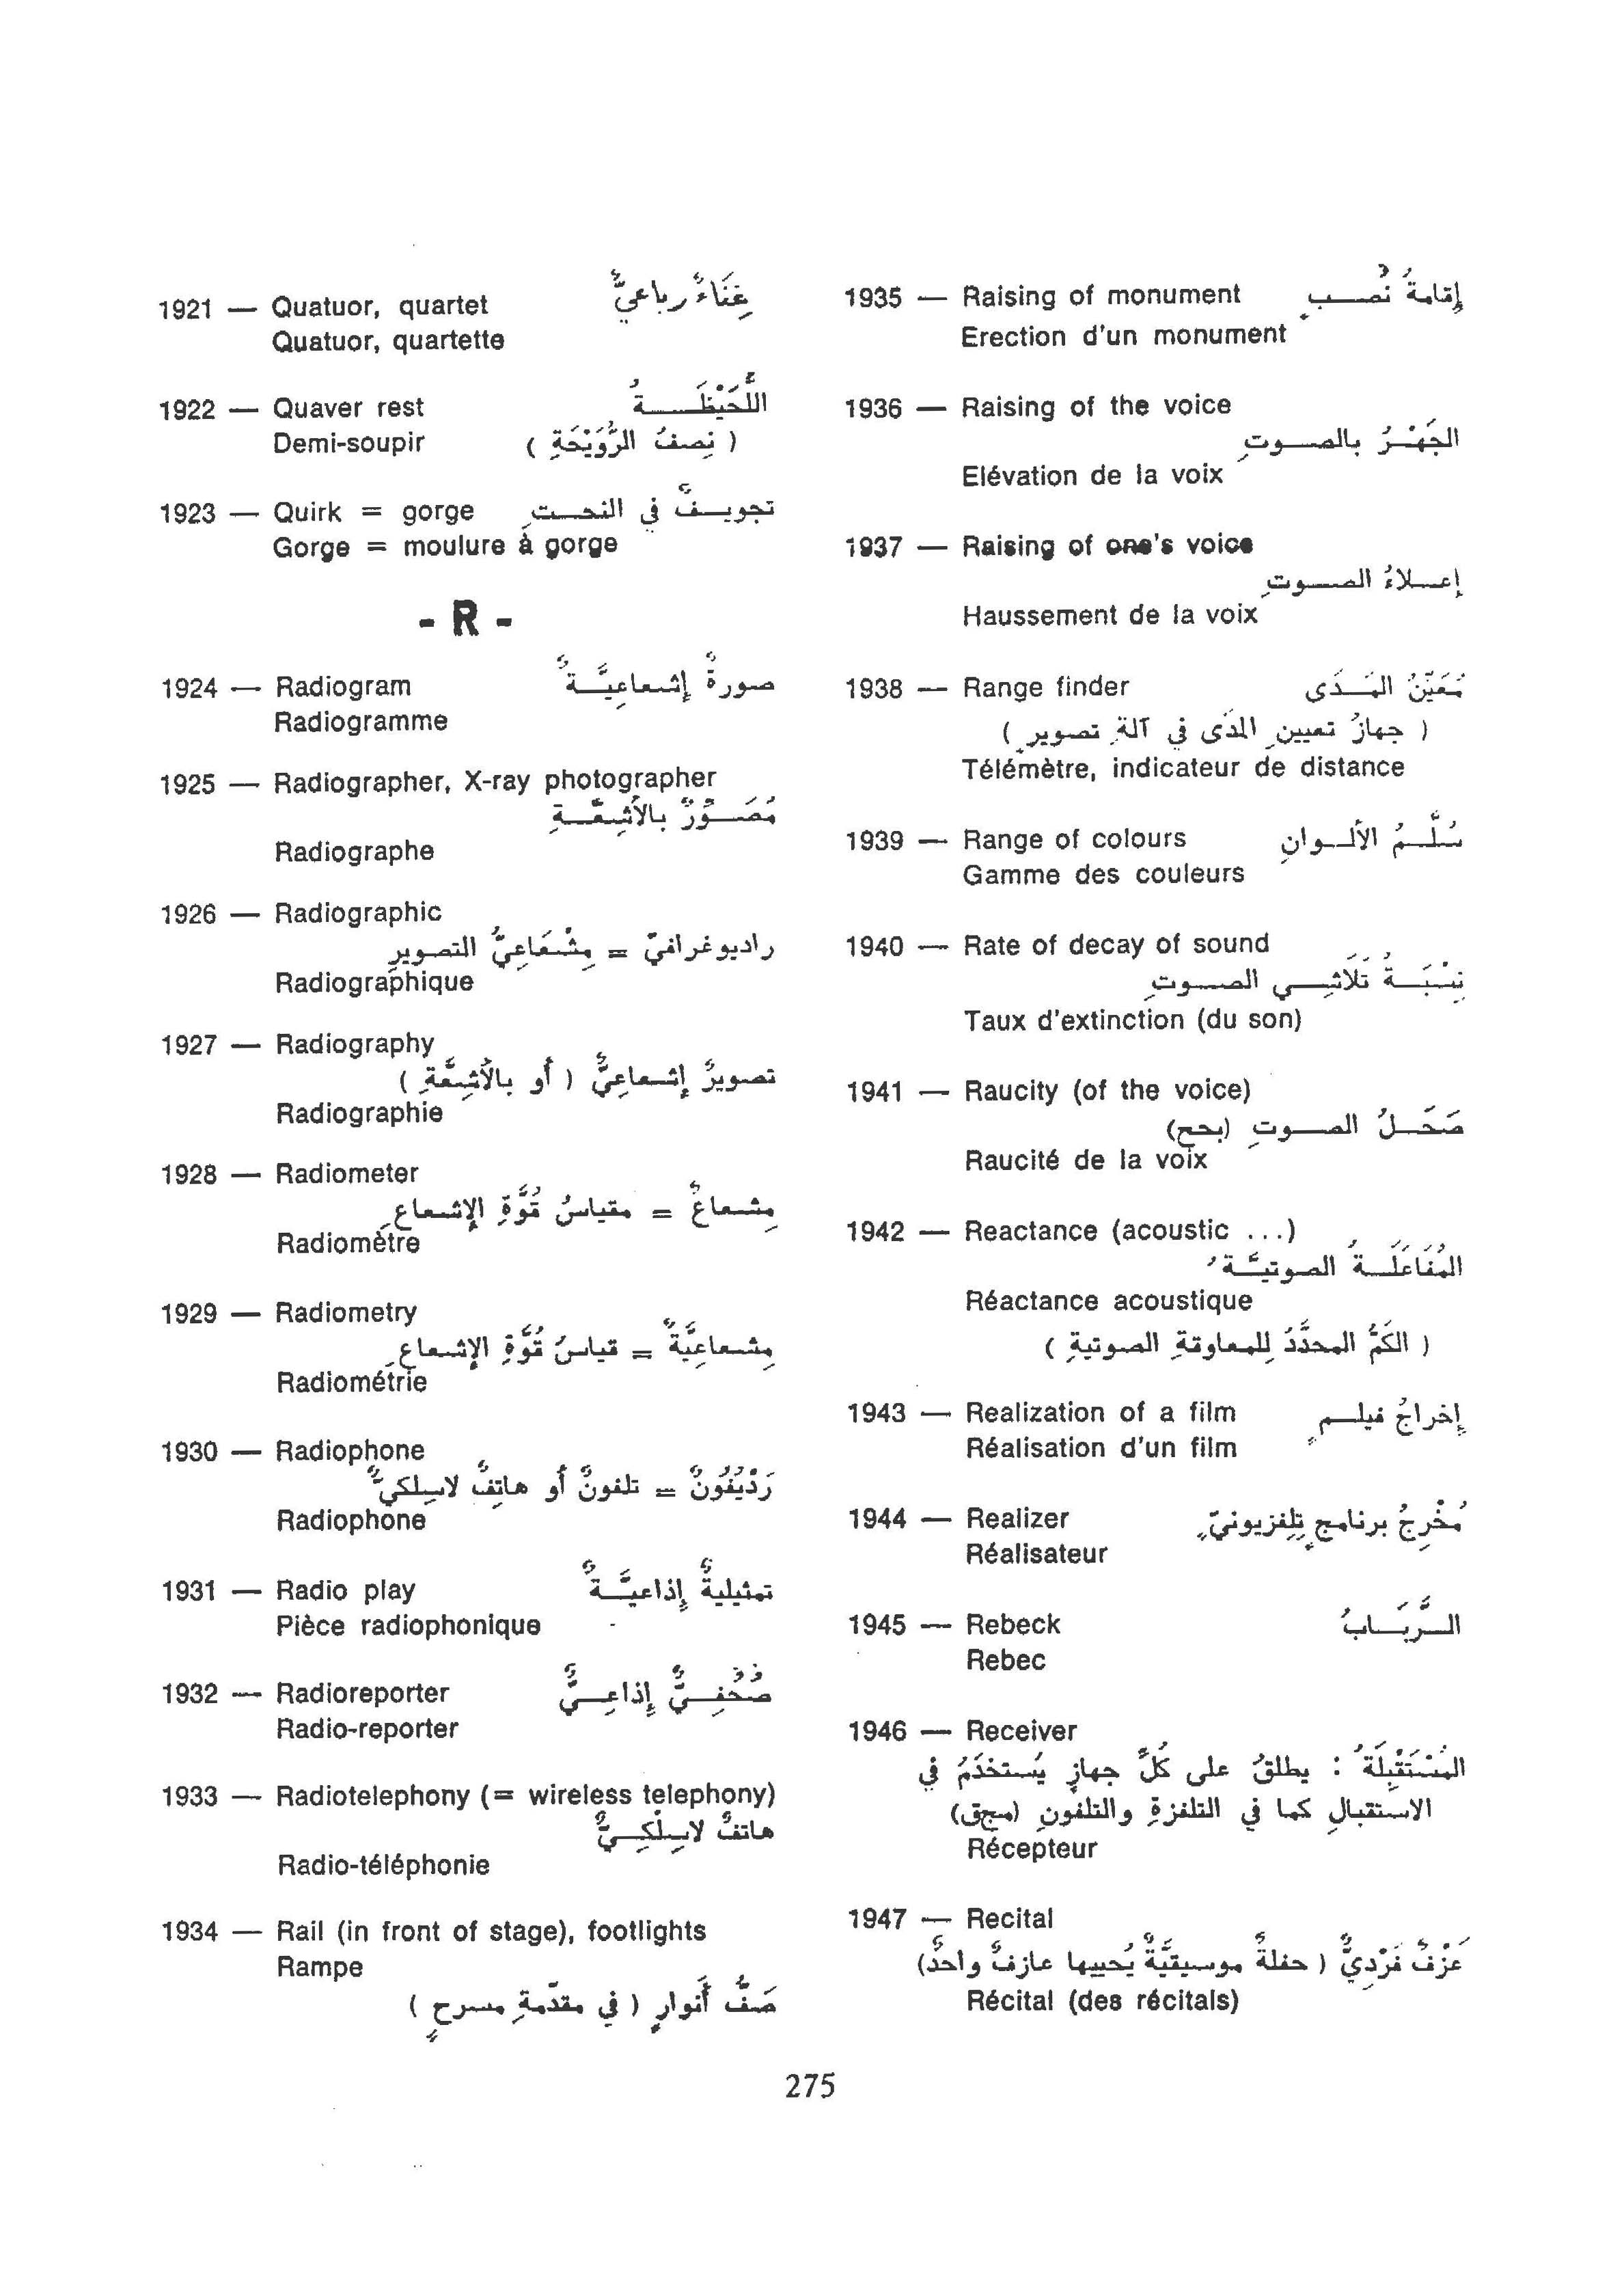 1921 — Quatuor, quartet غِنَاءٌ رباعيٌّ
Quatuor, quartette
1922 — Quaver rest اللُّحَيْظَـــةُ
Demi-soupir ( نِصفُ الرُّوَيْحَةِ )
1923 — Quirk = gorge تجويــفٌ في النحــتِ
Gorge = moulure à gorge
- R -
1924 — Radiogram صورةٌ إشــعاعيَّــةٌ
Radiogramme
1925 — Radiographer, X-ray photographer
مُصَــوِّرٌ بالأشِعَّــةِ
Radiographe
1926 — Radiographic
راديوغرافيّ = مِشْعَاعِيُّ التصويرِ
Radiographique
1927 — Radiography
تصويرٌ إشــعاعِيٌّ ( أو بالأشِعَّةِ )
Radiographie
1928 — Radiometer
مِشــعاعٌ = مقياسُ قُوَّةِ الإشــعاعِ
Radiomètre
1929 — Radiometry
مِشــعاعِيَّةٌ = قياسُ قُوَّةِ الإشــعاعِ
Radiométrie
1930 — Radiophone
رَدْيُفُونٌ = تلفونٌ أو هاتِفٌ لاسِلكيٌّ
Radiophone
1931 — Radio play تمثيليةٌ إذاعيَّــةٌ
Pièce radiophonique
1932 — Radioreporter صُحُفِــيٌّ إذاعِــيٌّ
Radio-reporter
1933 — Radiotelephony (= wireless telephony)
هاتفٌ لاسِلْكِــيٌّ
Radio-téléphonie
1934 — Rail (in front of stage), footlights
Rampe
صَفُّ أنوارٍ ( في مقدّمةِ مسرحٍ )
1935 — Raising of monument إقامةُ نُصــبٍ
Erection d'un monument
1936 — Raising of the voice
الجَهْــرُ بالصــوتِ
Elévation de la voix
1937 — Raising of one's voice
إعــلاءُ الصــوتِ
Haussement de la voix
1938 — Range finder مُعَيِّنُ المَــدَى
( جهازُ تعيينِ المَدَى في آلةِ تصويرٍ )
Télémètre, indicateur de distance
1939 — Range of colours سُلَّــمُ الألــوانِ
Gamme des couleurs
1940 — Rate of decay of sound
نِسْبَــةُ تَلَاشِــي الصــوتِ
Taux d'extinction (du son)
1941 — Raucity (of the voice)
صَحَــلُ الصــوتِ (بحح)
Raucité de la voix
1942 — Reactance (acoustic ...)
المُفَاعَلَــةُ الصوتيَّــةُ
Réactance acoustique
( الكَمُّ المحدَّدُ للمعاوقةِ الصوتيةِ )
1943 — Realization of a film إخراجُ فيلــمٍ
Réalisation d'un film
1944 — Realizer مُخْرِجُ برنامجٍ تِلفزيونيٍّ
Réalisateur
1945 — Rebeck الــرَّبَــابُ
Rebec
1946 — Receiver
المُسْتَقْبِلَةُ : يطلقُ على كلِّ جهازٍ يُستخدَمُ في
الاستقبالِ كما في التلفزةِ والتلفونِ (مجق)
Récepteur
1947 — Recital
عَزْفٌ فَرْدِيٌّ ( حفلةٌ موسيقيَّةٌ يُحييها عازفٌ واحدٌ)
Récital (des récitals)
275